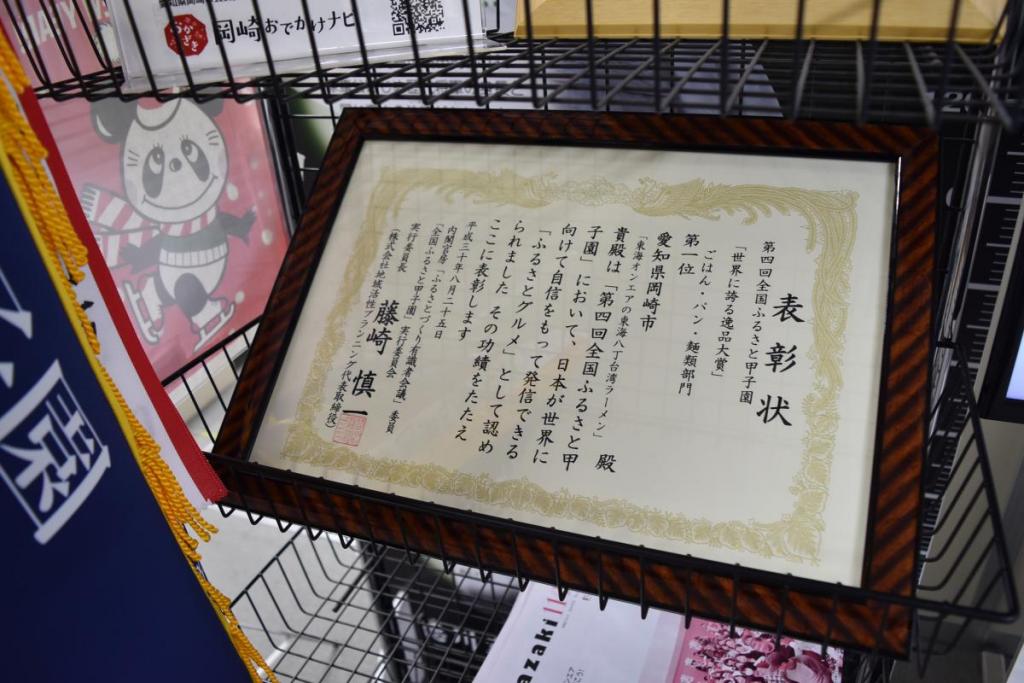 おかざき
岡崎おでかけナビ
表彰状
第四回全国ふるさと甲子園
「世界に誇る逸品大賞」
ごはん・パン・麺類部門
第一位
愛知県岡崎市
「東海オンエアの東海八丁台湾ラーメン」 殿
貴殿は「第四回全国ふるさと甲
子園」において、日本が世界に
向けて自信をもって発信できる
「ふるさとグルメ」として認め
られました その功績をたたえ
ここに表彰します
平成三十年八月二十五日
内閣官房「ふるさとづくり有識者会議」委員
「全国ふるさと甲子園」実行委員会
実行委員長 藤崎 慎一
(株式会社地域活性プランニング代表取締役)
azaki